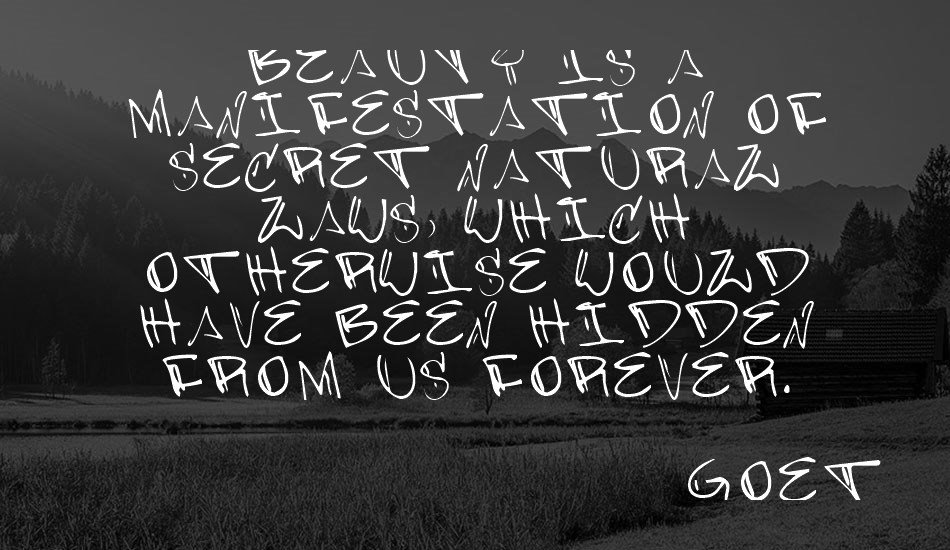 BEAUTY IS A
MANIFESTATION OF
SECRET NATURAL
LAWS, WHICH
OTHERWISE WOULD
HAVE BEEN HIDDEN
FROM US FOREVER.
GOET